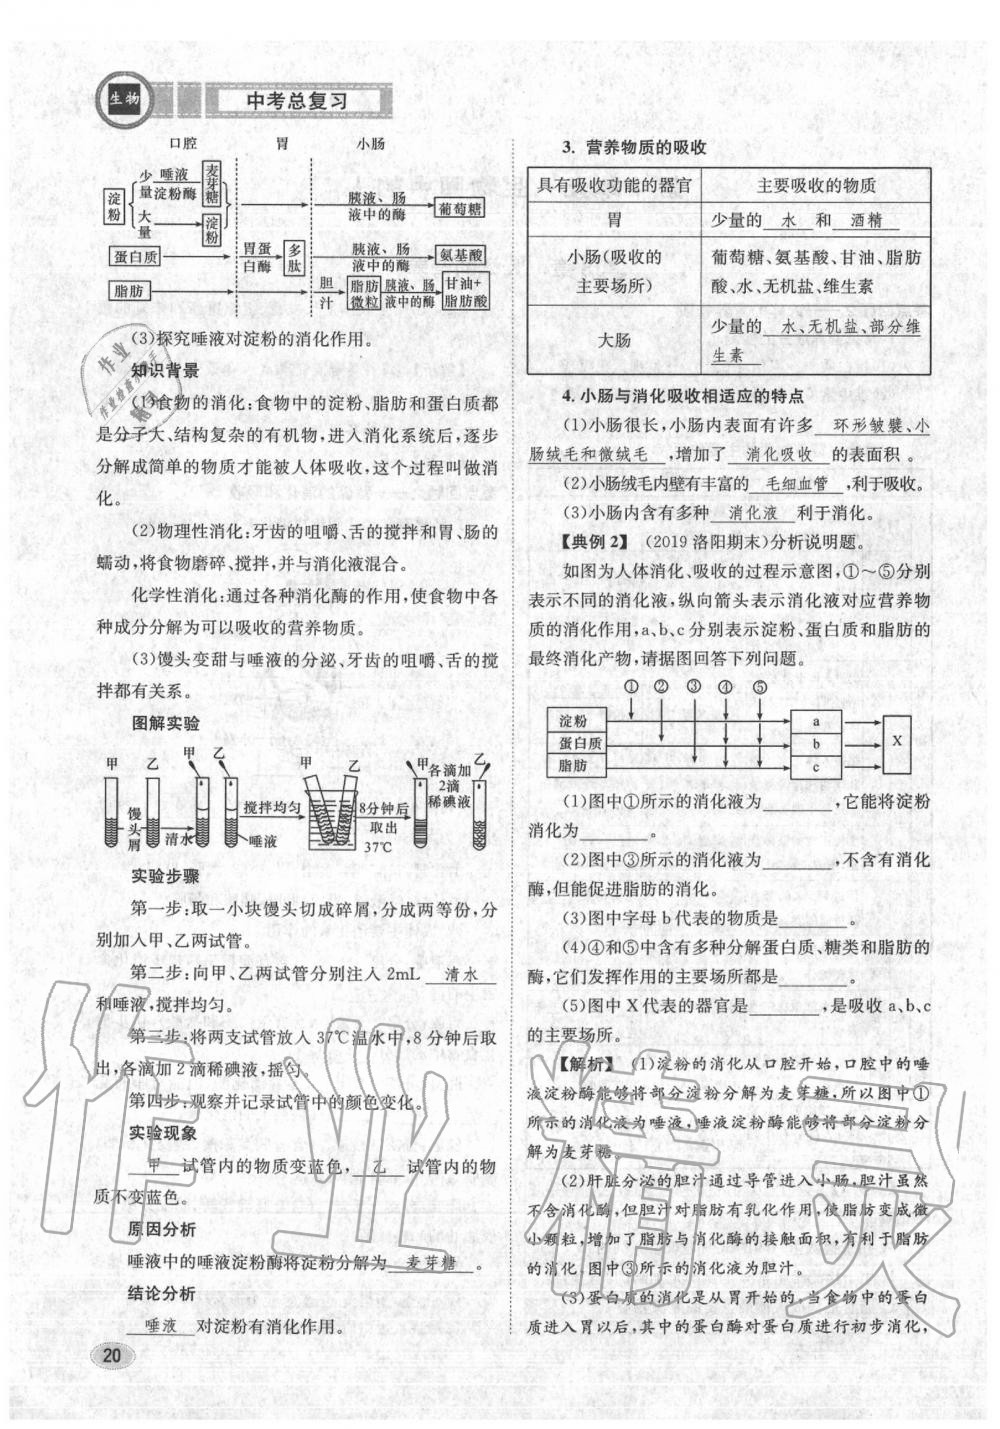 生物
中考总复习
口腔 胃 小肠
淀粉 少量 唾液淀粉酶 麦芽糖
大量 淀粉
胰液、肠液中的酶 葡萄糖
蛋白质 胃蛋白酶 多肽 胰液、肠液中的酶 氨基酸
脂肪 胆汁 脂肪微粒 胰液、肠液中的酶 甘油+脂肪酸
(3)探究唾液对淀粉的消化作用。
知识背景
(1)食物的消化:食物中的淀粉、脂肪和蛋白质都
是分子大、结构复杂的有机物,进入消化系统后,逐步
分解成简单的物质才能被人体吸收,这个过程叫做消
化。
(2)物理性消化:牙齿的咀嚼、舌的搅拌和胃、肠的
蠕动,将食物磨碎、搅拌,并与消化液混合。
化学性消化:通过各种消化酶的作用,使食物中各
种成分分解为可以吸收的营养物质。
(3)馒头变甜与唾液的分泌、牙齿的咀嚼、舌的搅
拌都有关系。
图解实验
甲 乙 甲 乙 甲 乙 甲 各滴加2滴稀碘液 乙
馒头屑 清水 唾液 搅拌均匀 8分钟后取出 37℃
实验步骤
第一步:取一小块馒头切成碎屑,分成两等份,分
别加入甲、乙两试管。
第二步:向甲、乙两试管分别注入 2mL 清水
和唾液,搅拌均匀。
第三步:将两支试管放入 37℃温水中,8 分钟后取
出,各滴加 2 滴稀碘液,摇匀。
第四步:观察并记录试管中的颜色变化。
实验现象
甲 试管内的物质变蓝色, 乙 试管内的物
质不变蓝色。
原因分析
唾液中的唾液淀粉酶将淀粉分解为 麦芽糖 。
结论分析
唾液 对淀粉有消化作用。
20
3. 营养物质的吸收
具有吸收功能的器官 主要吸收的物质
胃 少量的 水 和 酒精
小肠(吸收的主要场所) 葡萄糖、氨基酸、甘油、脂肪
酸、水、无机盐、维生素
大肠 少量的 水、无机盐、部分维
生素
4. 小肠与消化吸收相适应的特点
(1)小肠很长,小肠内表面有许多 环形皱襞、小
肠绒毛和微绒毛 ,增加了 消化吸收 的表面积 。
(2)小肠绒毛内壁有丰富的 毛细血管 ,利于吸收。
(3)小肠内含有多种 消化液 利于消化。
【典例 2】 (2019 洛阳期末)分析说明题。
如图为人体消化、吸收的过程示意图,①～⑤分别
表示不同的消化液,纵向箭头表示消化液对应营养物
质的消化作用,a、b、c 分别表示淀粉、蛋白质和脂肪的
最终消化产物,请据图回答下列问题。
① ② ③ ④ ⑤
淀粉 a
蛋白质 b X
脂肪 c
(1)图中①所示的消化液为________,它能将淀粉
消化为________。
(2)图中③所示的消化液为________,不含有消化
酶,但能促进脂肪的消化。
(3)图中字母 b 代表的物质是________。
(4)④和⑤中含有多种分解蛋白质、糖类和脂肪的
酶,它们发挥作用的主要场所都是________。
(5)图中 X 代表的器官是________,是吸收 a、b、c
的主要场所。
【解析】 (1)淀粉的消化从口腔开始,口腔中的唾
液淀粉酶能够将部分淀粉分解为麦芽糖,所以图中①
所示的消化液为唾液,唾液淀粉酶能够将部分淀粉分
解为麦芽糖。
(2)肝脏分泌的胆汁通过导管进入小肠,胆汁虽然
不含消化酶,但胆汁对脂肪有乳化作用,使脂肪变成微
小颗粒,增加了脂肪与消化酶的接触面积,有利于脂肪
的消化.图中③所示的消化液为胆汁。
(3)蛋白质的消化是从胃开始的,当食物中的蛋白
质进入胃以后,其中的蛋白酶对蛋白质进行初步消化,
作业精灵